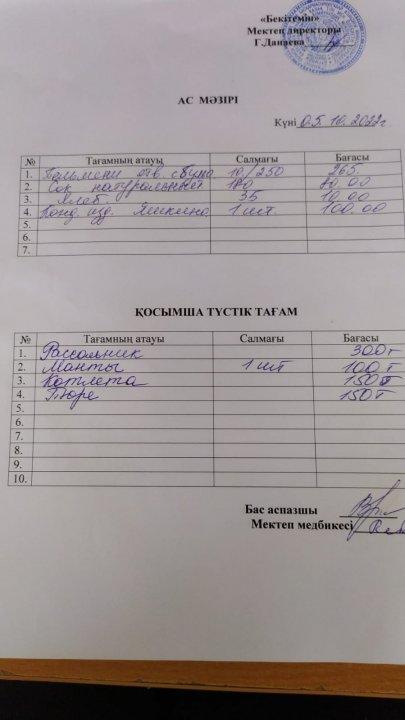 «Бекітемін»
Мектеп директоры
Г.Данаева
АС МӘЗІРІ
Күні 05.10.2022г
№ Тағамның атауы Салмағы Бағасы
1. Пельмени отв. с бул 10/250 265.
2. Сок натуральный 180 80.00
3. Хлеб. 35 10.00
4. Конд. изд. Яшкино 1 шт. 100.00
5.
6.
7.
ҚОСЫМША ТҮСТІК ТАҒАМ
№ Тағамның атауы Салмағы Бағасы
1. Рассольник 300т
2. Манты 1 шт 100т
3. Котлета 150т
4. Пюре 150т
5.
6.
7.
8.
9.
10.
Бас аспазшы
Мектеп медбикесі